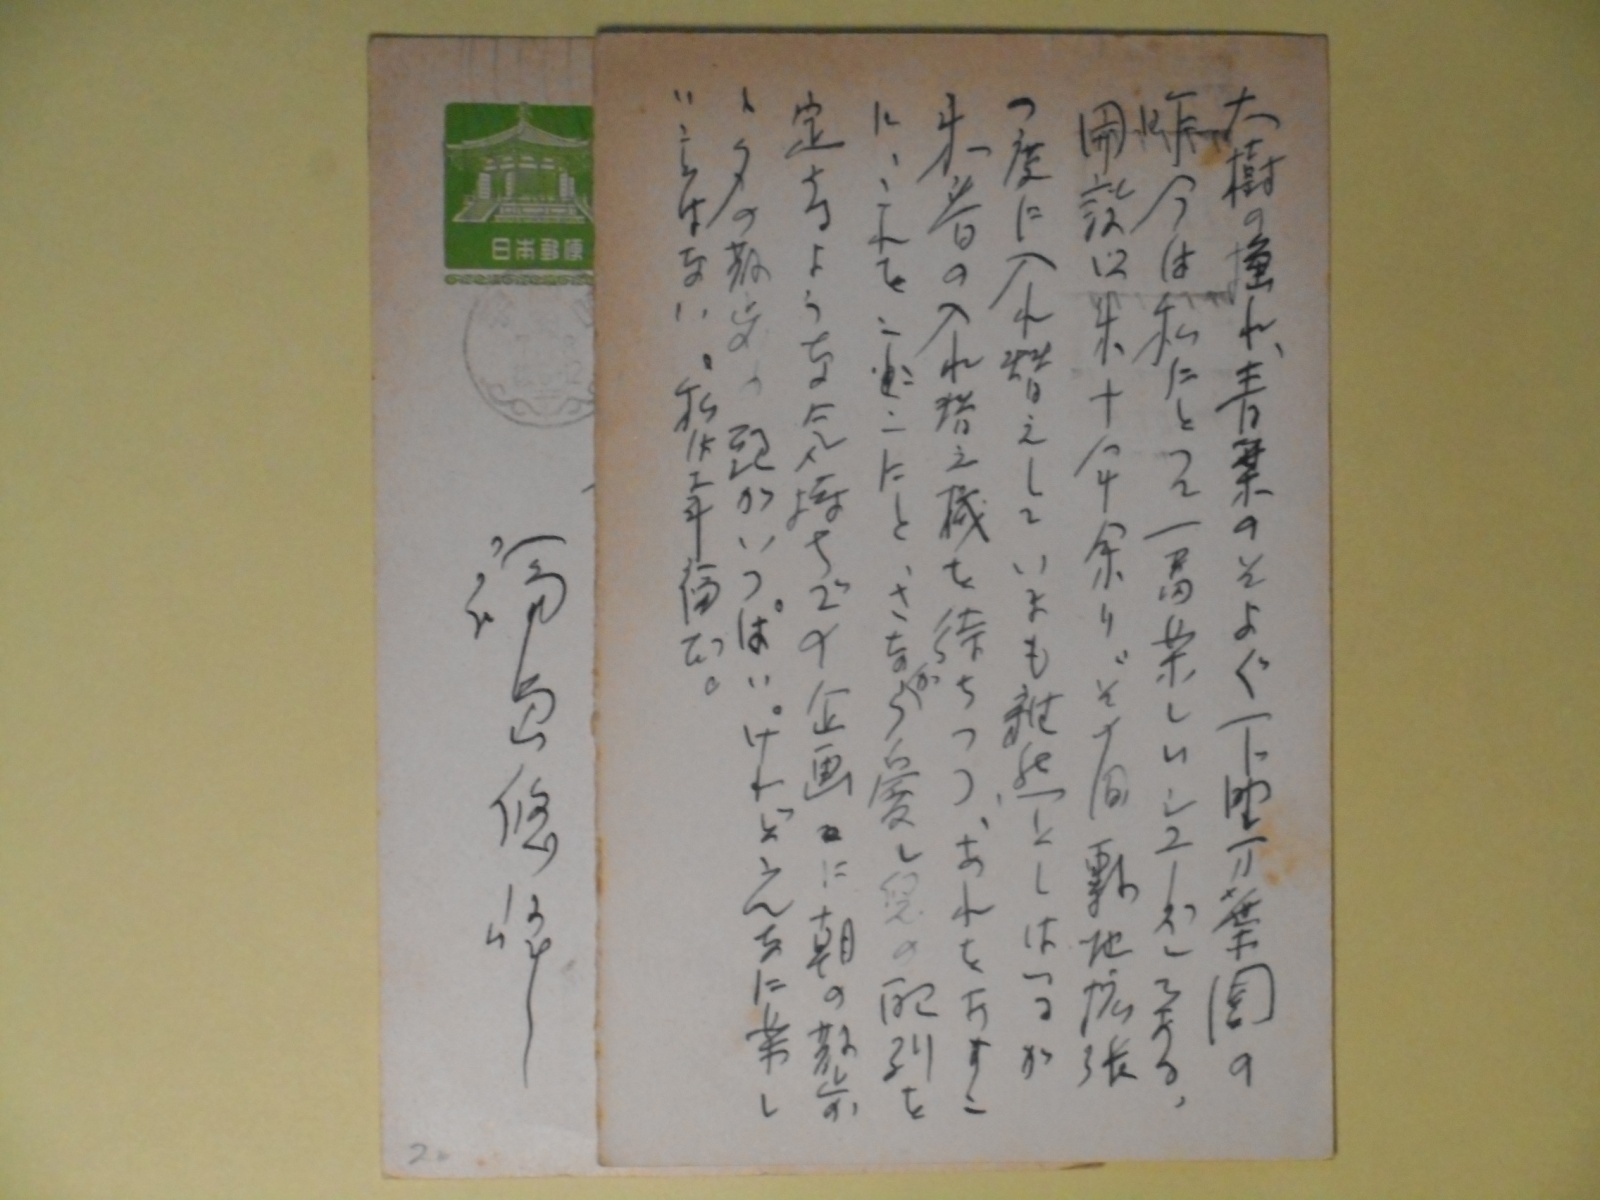 大樹の憧れ、青葉のそよぐ下野万葉園の
昨今は私にとって一番楽しいシーズンである、
開設以来十年余り、その間敷地拡張
の度に入れ替えしていまも雑然としはつるが
来春の入れ替え機を待ちつつ、あれをあすこ
に、これをここにと、さながら愛し児の配列を
定めるような気持ちでの企画に朝の散歩
夕の散歩の 頭がいっぱい。けれどこんなに楽し
いことはない。私は幸福だ。
日本郵便
福島悠峰